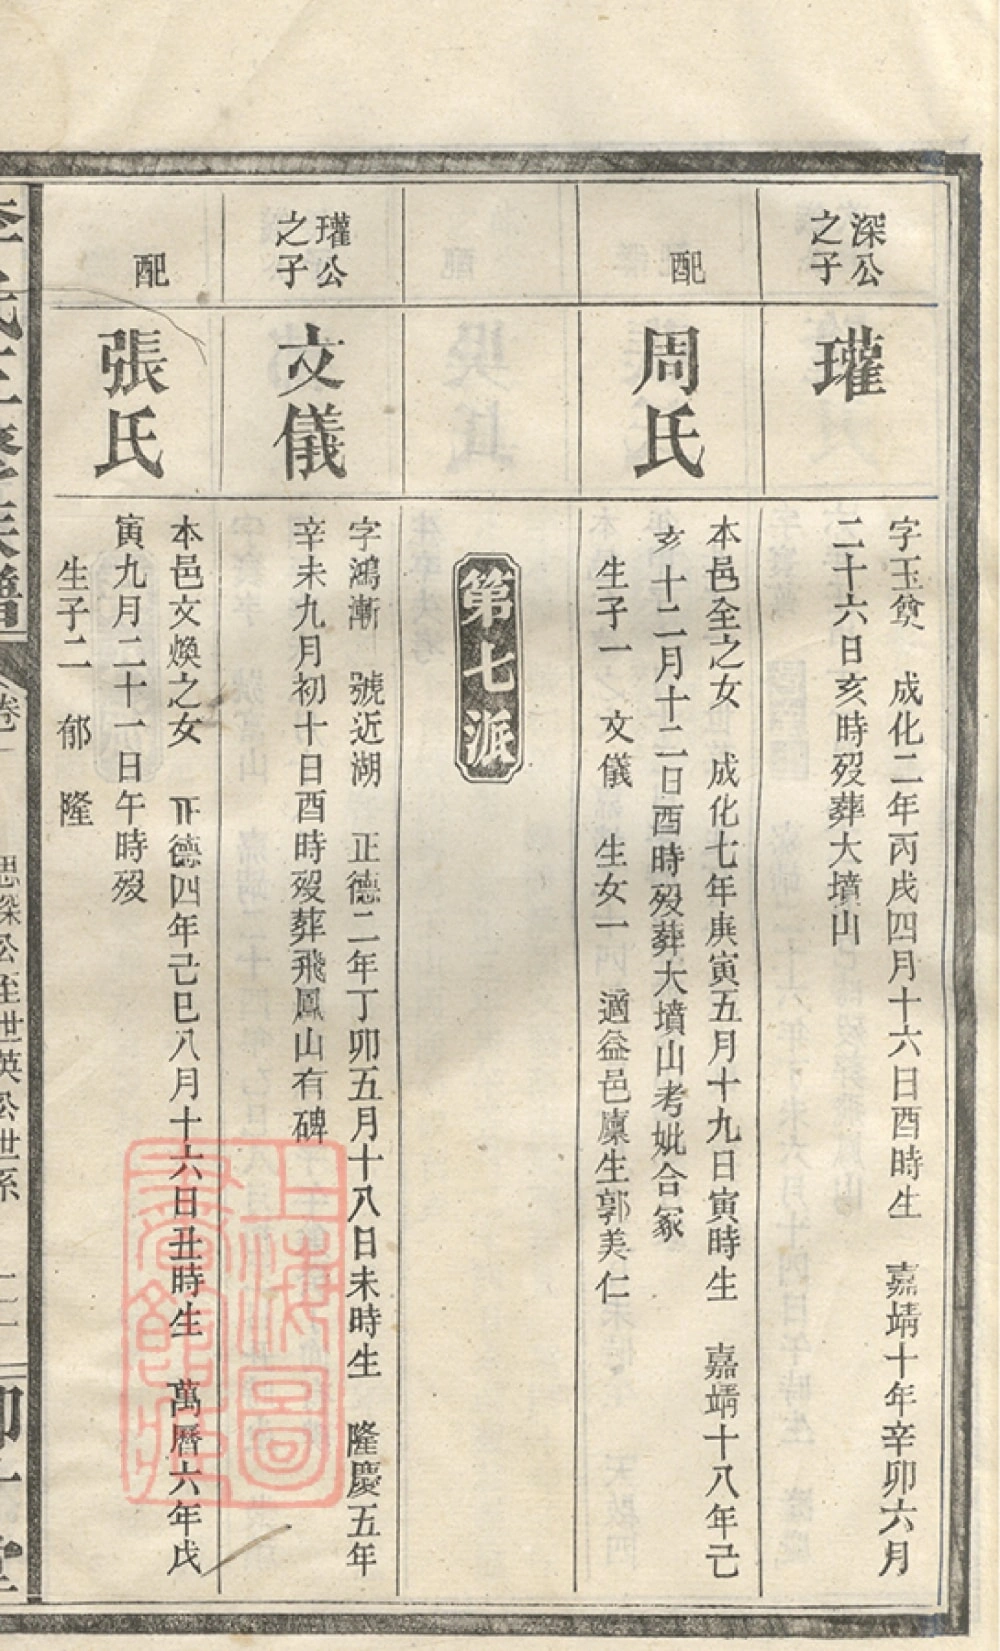 深公
之子
瓘
字玉㸑　成化二年丙戌四月十六日酉時生　嘉靖十年辛卯六月
二十六日亥時歿葬大墳山
配
周氏
本邑全之女　成化七年庚寅五月十九日寅時生　嘉靖十八年己
亥十二月十二日酉時歿葬大墳山考妣合冢
生子一　文儀　生女一　適益邑廩生郭美仁
第七派
瓘公
之子
文儀
字鴻漸　號近湖　正德二年丁卯五月十八日未時生　隆慶五年
辛未九月初十日酉時歿葬飛鳳山有碑
配
張氏
本邑文煥之女　正德四年己巳八月十六日丑時生　萬曆六年戊
寅九月二十一日午時歿
生子二　郁　隆
卷一
思深公至世英公世系
上海圖
書館藏